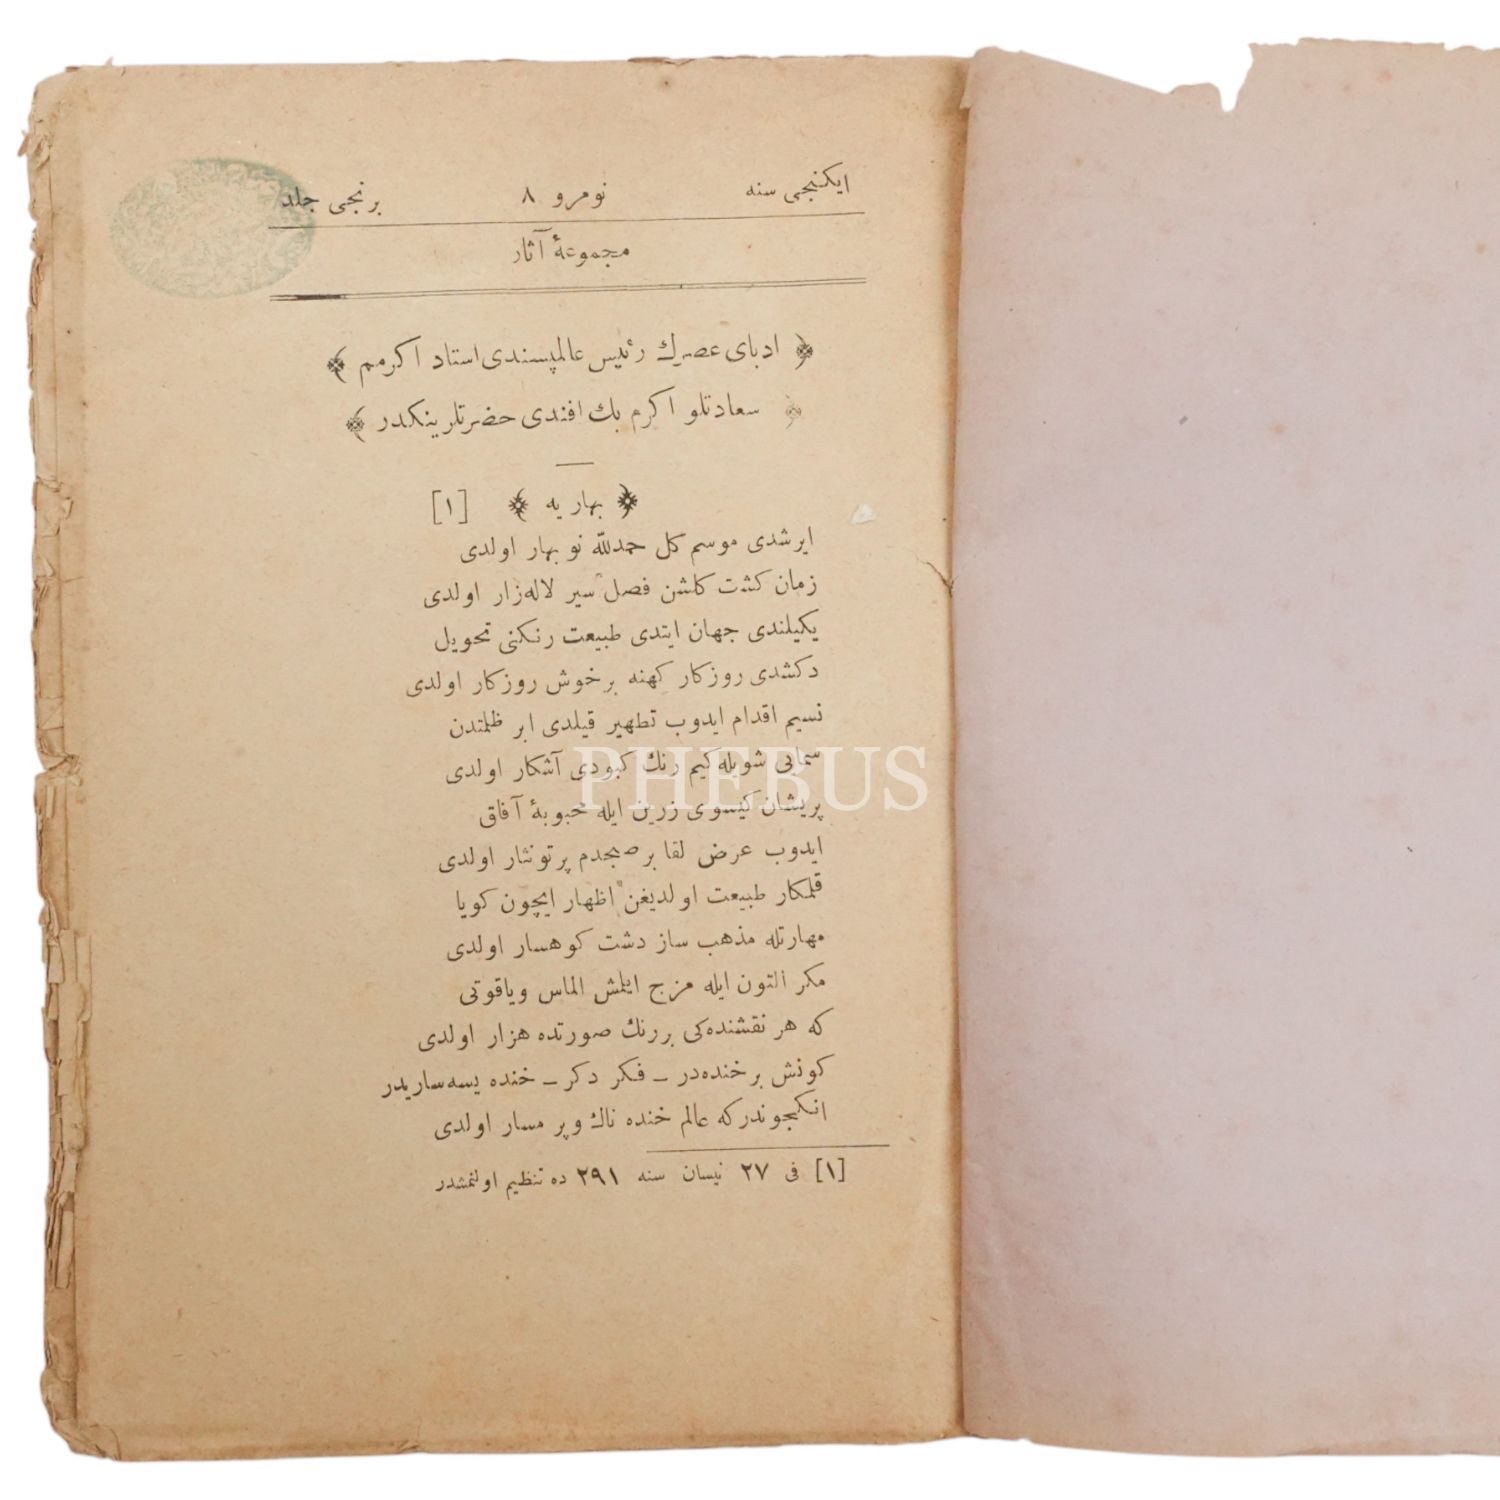 ایكنجی سنه نومرو ٨ برنجی جلد
مجموعۀ آثار
﴿ ادبای عصرك رئیس عالمپسندی استاد اكرمم ﴾
﴿ سعادتلو اكرم بك افندی حضرتلرینكدر ﴾
﴿ بهاریه ﴾ [١]
ایرشدی موسم كل حمدلله نو بهار اولدی
زمان كشت كلشن فصل سیر لاله‌زار اولدی
یكیلندی جهان ایتدی طبیعت رنكنی تحویل
دكشدی روزكار كهنه برخوش روزكار اولدی
نسیم اقدام ایدوب تطهیر قیلدی ابر ظلمتدن
سمایی شویله كیم رنك كبودی آشكار اولدی
PHEBUS
پریشان كیسوی زرین ایله محبوبۀ آفاق
ایدوب عرض لقا بر صبحدم پرتونثار اولدی
قلمكار طبیعت اولدیغن اظهار ایچون كویا
مهارتله مذهب ساز دشت كوهسار اولدی
مكر التون ایله مزج ایلمش الماس ویاقوتی
كه هر نقشنده‌كی بررنك صورتده هزار اولدی
كونش برخنده‌در ـ فكر دكر ـ خنده یسه‌ساریدر
انكیچوندركه عالم خنده ناك وپر مسار اولدی
[١] فی ٢٧ نیسان سنه ٢٩١ ده تنظیم اولنمشدر